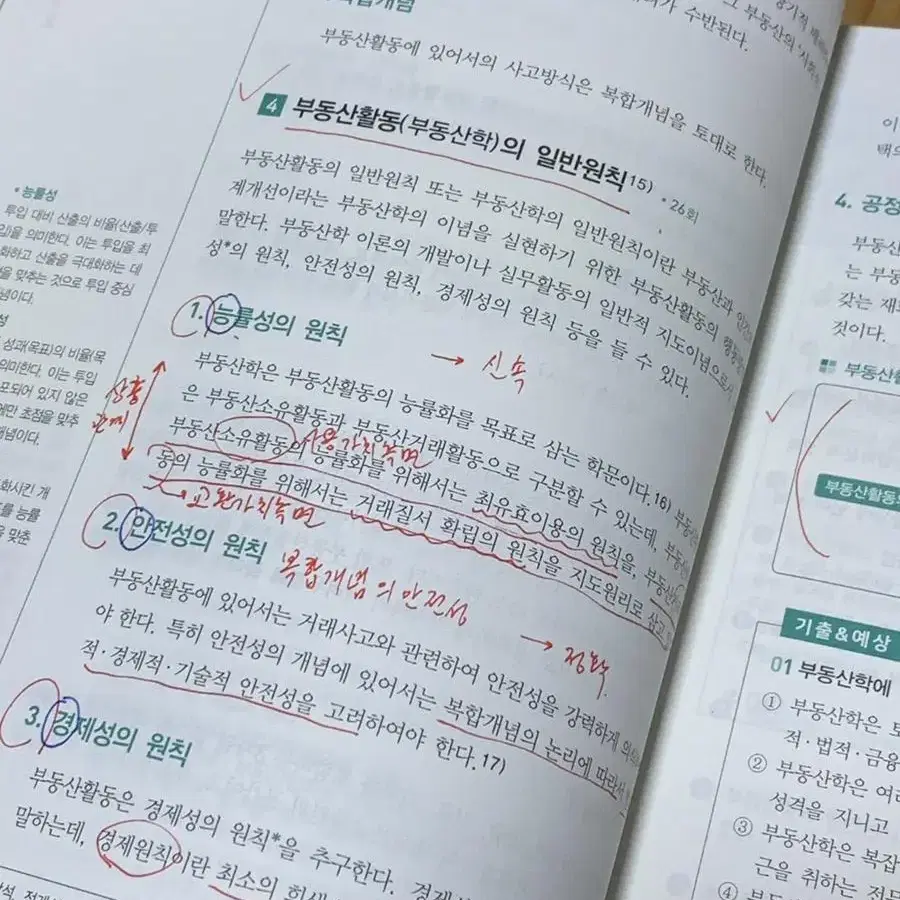 부동산활동에 있어서의 사고방식은 복합개념을 토대로 한다.
수반된다.
4 부동산활동(부동산학)의 일반원칙15)
• 26회
부동산활동의 일반원칙 또는 부동산학의 일반원칙이란 부동산과
계개선이라는 부동산학의 이념을 실현하기 위한 부동산활동의
말한다. 부동산학 이론의 개발이나 실무활동의 일반적 지도이념으로서
성*의 원칙, 안전성의 원칙, 경제성의 원칙 등을 들 수 있다.
1. 능률성의 원칙
→ 신속
부동산학은 부동산활동의 능률화를 목표로 삼는 학문이다.16)
은 부동산소유활동과 부동산거래활동으로 구분할 수 있는데,
사용가치측면
부동산소유활동의 능률화를 위해서는 최유효이용의 원칙을,
동의 능률화를 위해서는 거래질서 확립의 원칙을 지도원리로 삼고
→ 교환가치측면
상충
관계
2. 안전성의 원칙
복합개념의 안전성
→ 정확
부동산활동에 있어서는 거래사고와 관련하여 안전성을 강력하게
야 한다. 특히 안전성의 개념에 있어서는 복합개념의 논리에 따라서
적·경제적·기술적 안전성을 고려하여야 한다.17)
3. 경제성의 원칙
부동산활동은 경제성의 원칙*을 추구한다.
말하는데, 경제원칙이란 최소의
* 능률성
투입 대비 산출의 비율(산출/투
입)을 의미한다. 이는 투입을 최
화하고 산출을 극대화하는 데
을 맞추는 것으로 투입 중심
념이다.
성
성과(목표)의 비율(목
의미한다. 이는 투입
포되어 있지 않은
에만 초점을 맞추
개념이다.
화시킨 개
를 능률
맞춘
이
택의
4. 공정
부동산
는 부동
갖는 재
것이다.
부동산활
부동산활동의
기출&예상
01 부동산학에
① 부동산학은 토
적·법적·금융
② 부동산학은 여러
성격을 지니고
③ 부동산학은 복잡
근을 취하는 전
④